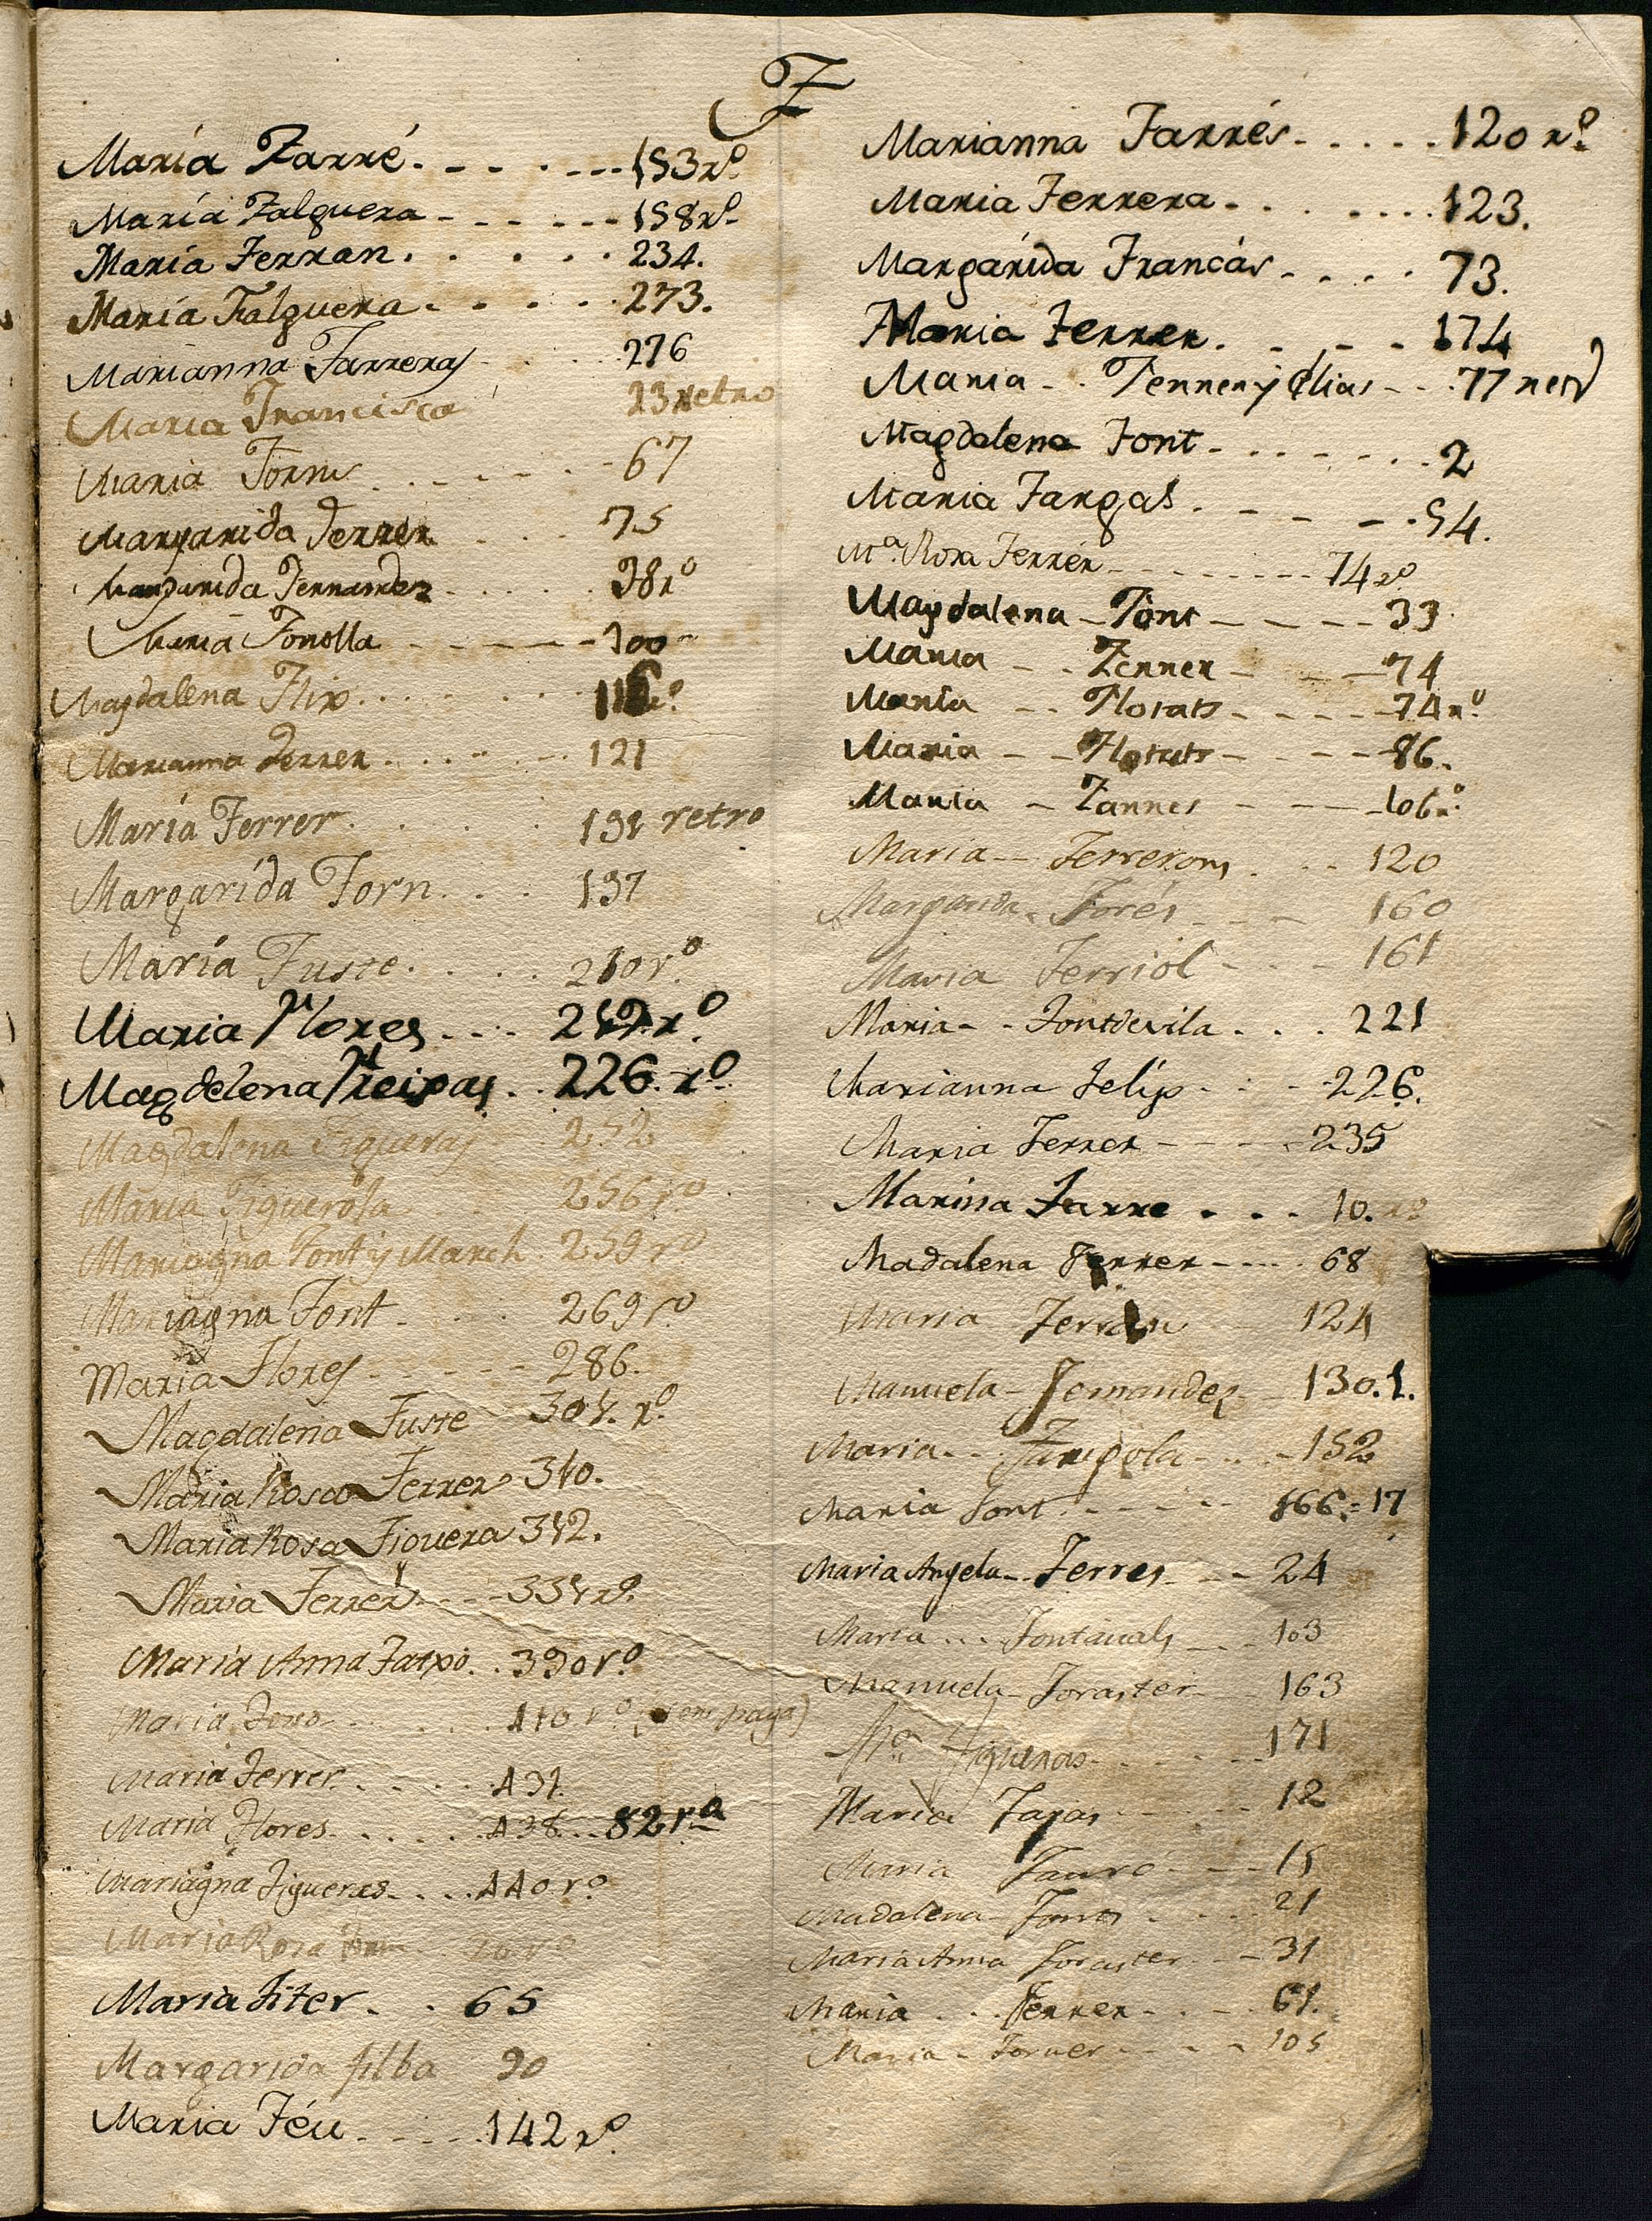 F
María Farré. - - . - - - - 153 rº
María Falguera - - - - - - - 158 rº
María Ferran. . . . . . 234.
María Falguera. - . . . . 273.
Marianna Farreras . . . . 276
Maria Francisca 23 retro
Maria Forns . . - - - - 67
Margarida Ferrer . . . 75
Margarida Fernandez . . . . . 98 rº
Maria Fonolla - - - - - 100
Magdalena Flix . . . . . . 116 rº
Marianna Ferrer . . . . . . . 121
María Ferrer. . . . . 131 retro
Margarída Forn. . . 137
María Fuste. . . . 210 rº
Maria Flores . - - . rº
Magdelena Freixas . . 226. rº
Magdalena Figueras . 252
Maria Figuerola . 256 rº
Mariagna Font y March . 259 rº
Mariagna Font . . . . 269 rº
Maria Flores - - - - - 286.
Magdalena Fuste 301. rº
Maria Rosa Ferrer 310.
Maria Rosa Figuera 312.
Maria Ferrer - - - 331 rº
Maria Anna Fatxo . . 390 rº
Maria . . . . . 410 rº
Maria Ferrer . . . . . 431.
Maria Flores . . . . . . 438 . . 82 rº
Mariagna Figueres . . . . 440 rº
Maria Rosa
Maria Fiter . . 65
Margarida filba 90
Maria Féu - - - - 142 rº
Marianna Farrés - . . . . 120 rº
Maria Ferrera - . . . . . . . 123.
Margarída Francás - . . . 73.
Maria Ferrer. . - - 174
Maria - . Ferrer y Elias - - . 77 retº
Magdalena Font - . . - . . . 2
Maria Fargas . - - - . 54.
Mª Rosa Ferrér - - - - - - - - 74 rº
Magdalena - Font - - - - - 33
Maria - . Ferrer - - - 74
Maria - - Florats - - - - - 74 rº
Maria - - Florats - - - - 86.
Maria - Farres - - - - 106 rº
Maria - - Ferrerons . . . 120
Margarida - Forés - - - 160
Maria Ferriol - - . - 161
Maria - - Fontdevila . . . 221
Marianna Felíp - . . - 226.
Maria Ferrer - - - - - 235
Marina Farre . . - 10. rº
Madalena Ferrer - - - . 68
Maria Ferran - 124
Manuela - Fernandez - 130. 1.
Maria - . Farigola - . . - 152
Maria Font . - - - - 166. = 17
Maria Angela - Ferres - - 24
Maria . . . Fontanals - . - 103
Manuela - Foraster - - 163
Mª Figueras - . . . . 171
Maria - - 12
Maria Fauro - - - 15
Madalena - . . . 21
Maria Anna Foraster - - 31
Maria . . Ferrer - . . - 61.
Maria - Forner - - - - 105